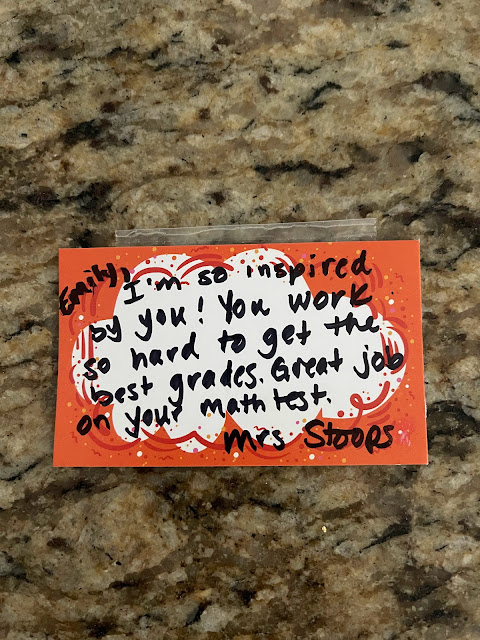 Emily,
I'm so inspired
by you! You work
so hard to get the
best grades. Great job
on your math test.
Mrs Stoops